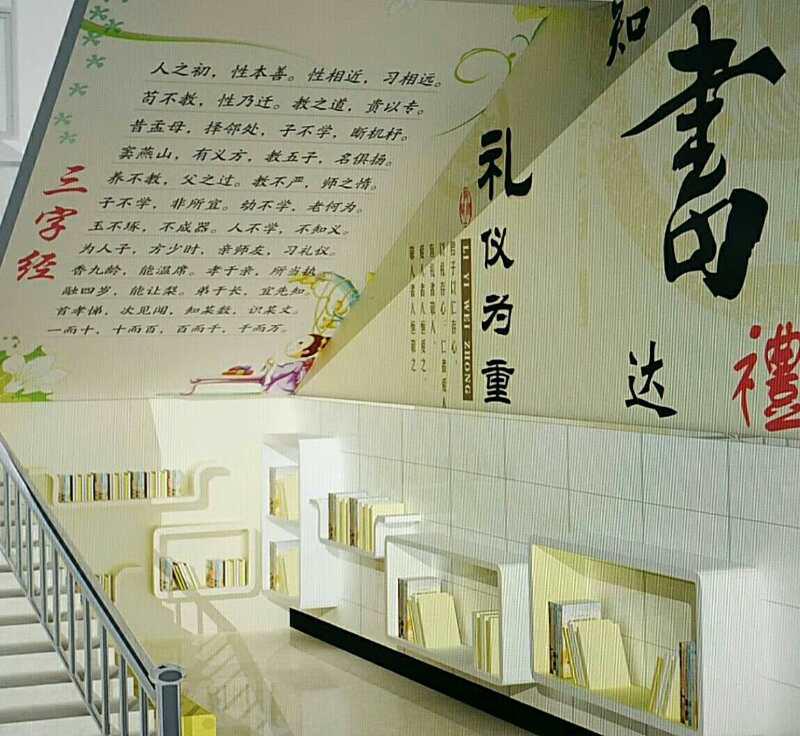 三字经
人之初，性本善。性相近，习相远。
苟不教，性乃迁。教之道，贵以专。
昔孟母，择邻处，子不学，断机杼。
窦燕山，有义方，教五子，名俱扬。
养不教，父之过。教不严，师之惰。
子不学，非所宜。幼不学，老何为。
玉不琢，不成器。人不学，不知义。
为人子，方少时，亲师友，习礼仪。
香九龄，能温席。孝于亲，所当执
融四岁，能让梨。弟于长，宜先知。
首孝悌，次见闻，知某数，识某文。
一而十，十而百，百而千，千而万。
礼仪为重
LI YI WEI ZHONG
君子以仁存心，
以礼存心。仁者爱人
有礼者敬人。
爱人者人恒爱之，
敬人者人恒敬之
知
書
达
禮